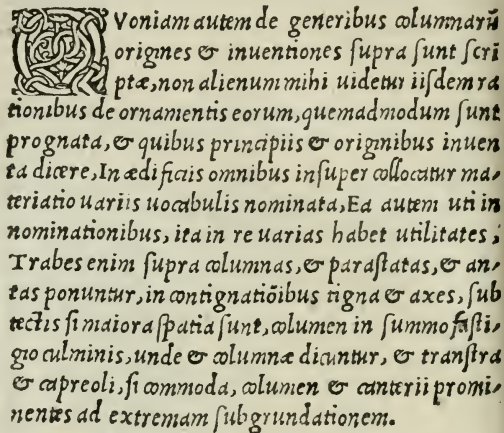 QVoniam autem de generibus columnarū
origines & inuentiones ſupra ſunt ſcri
ptæ, non alienum mihi uidetur iiſdem ra
tionibus de ornamentis eorum, quemadmodum ſunt
prognata, & quibus principiis & originibus inuen
ta dicere, In ædificiis omnibus inſuper collocatur ma-
teriatio uariis uocabulis nominata, Ea autem uti in
nominationibus, ita in re uarias habet utilitates;
Trabes enim ſupra columnas, & paraſtatas, & an-
tas ponuntur, in contignatiōibus tigna & axes, ſub
tectis ſi maiora ſpatia ſunt, columen in ſummo faſti-
gio culminis, unde & columnæ dicuntur, & tranſtra
& capreoli, ſi commoda, columen & canterii promi-
nentes ad extremam ſubgrundationem.